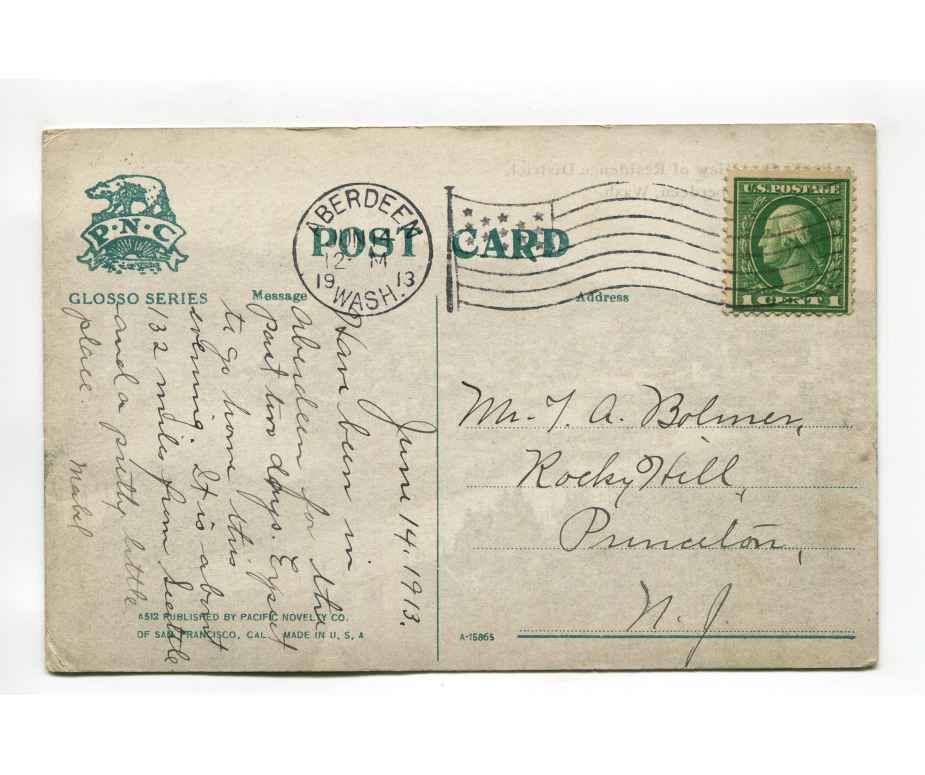 P·N·C
GLOSSO SERIES
POST CARD
Message
Address
ABERDEEN
JUN 14
12 M
19 13
WASH.
U.S. POSTAGE
1 CENT 1
June 14. 1913.
Have been in
Aberdeen for the
past two days. Expect
to go home this
evening. It is about
132 miles from Seattle
and a pretty little
place. Mabel
Mr. T. A. Bolmer,
Rocky Hill,
Princeton,
N. J.
A512 PUBLISHED BY PACIFIC NOVELTY CO.
OF SAN FRANCISCO, CAL. MADE IN U, S, A
A-15865
View of Residence District,
Aberdeen, Wash.